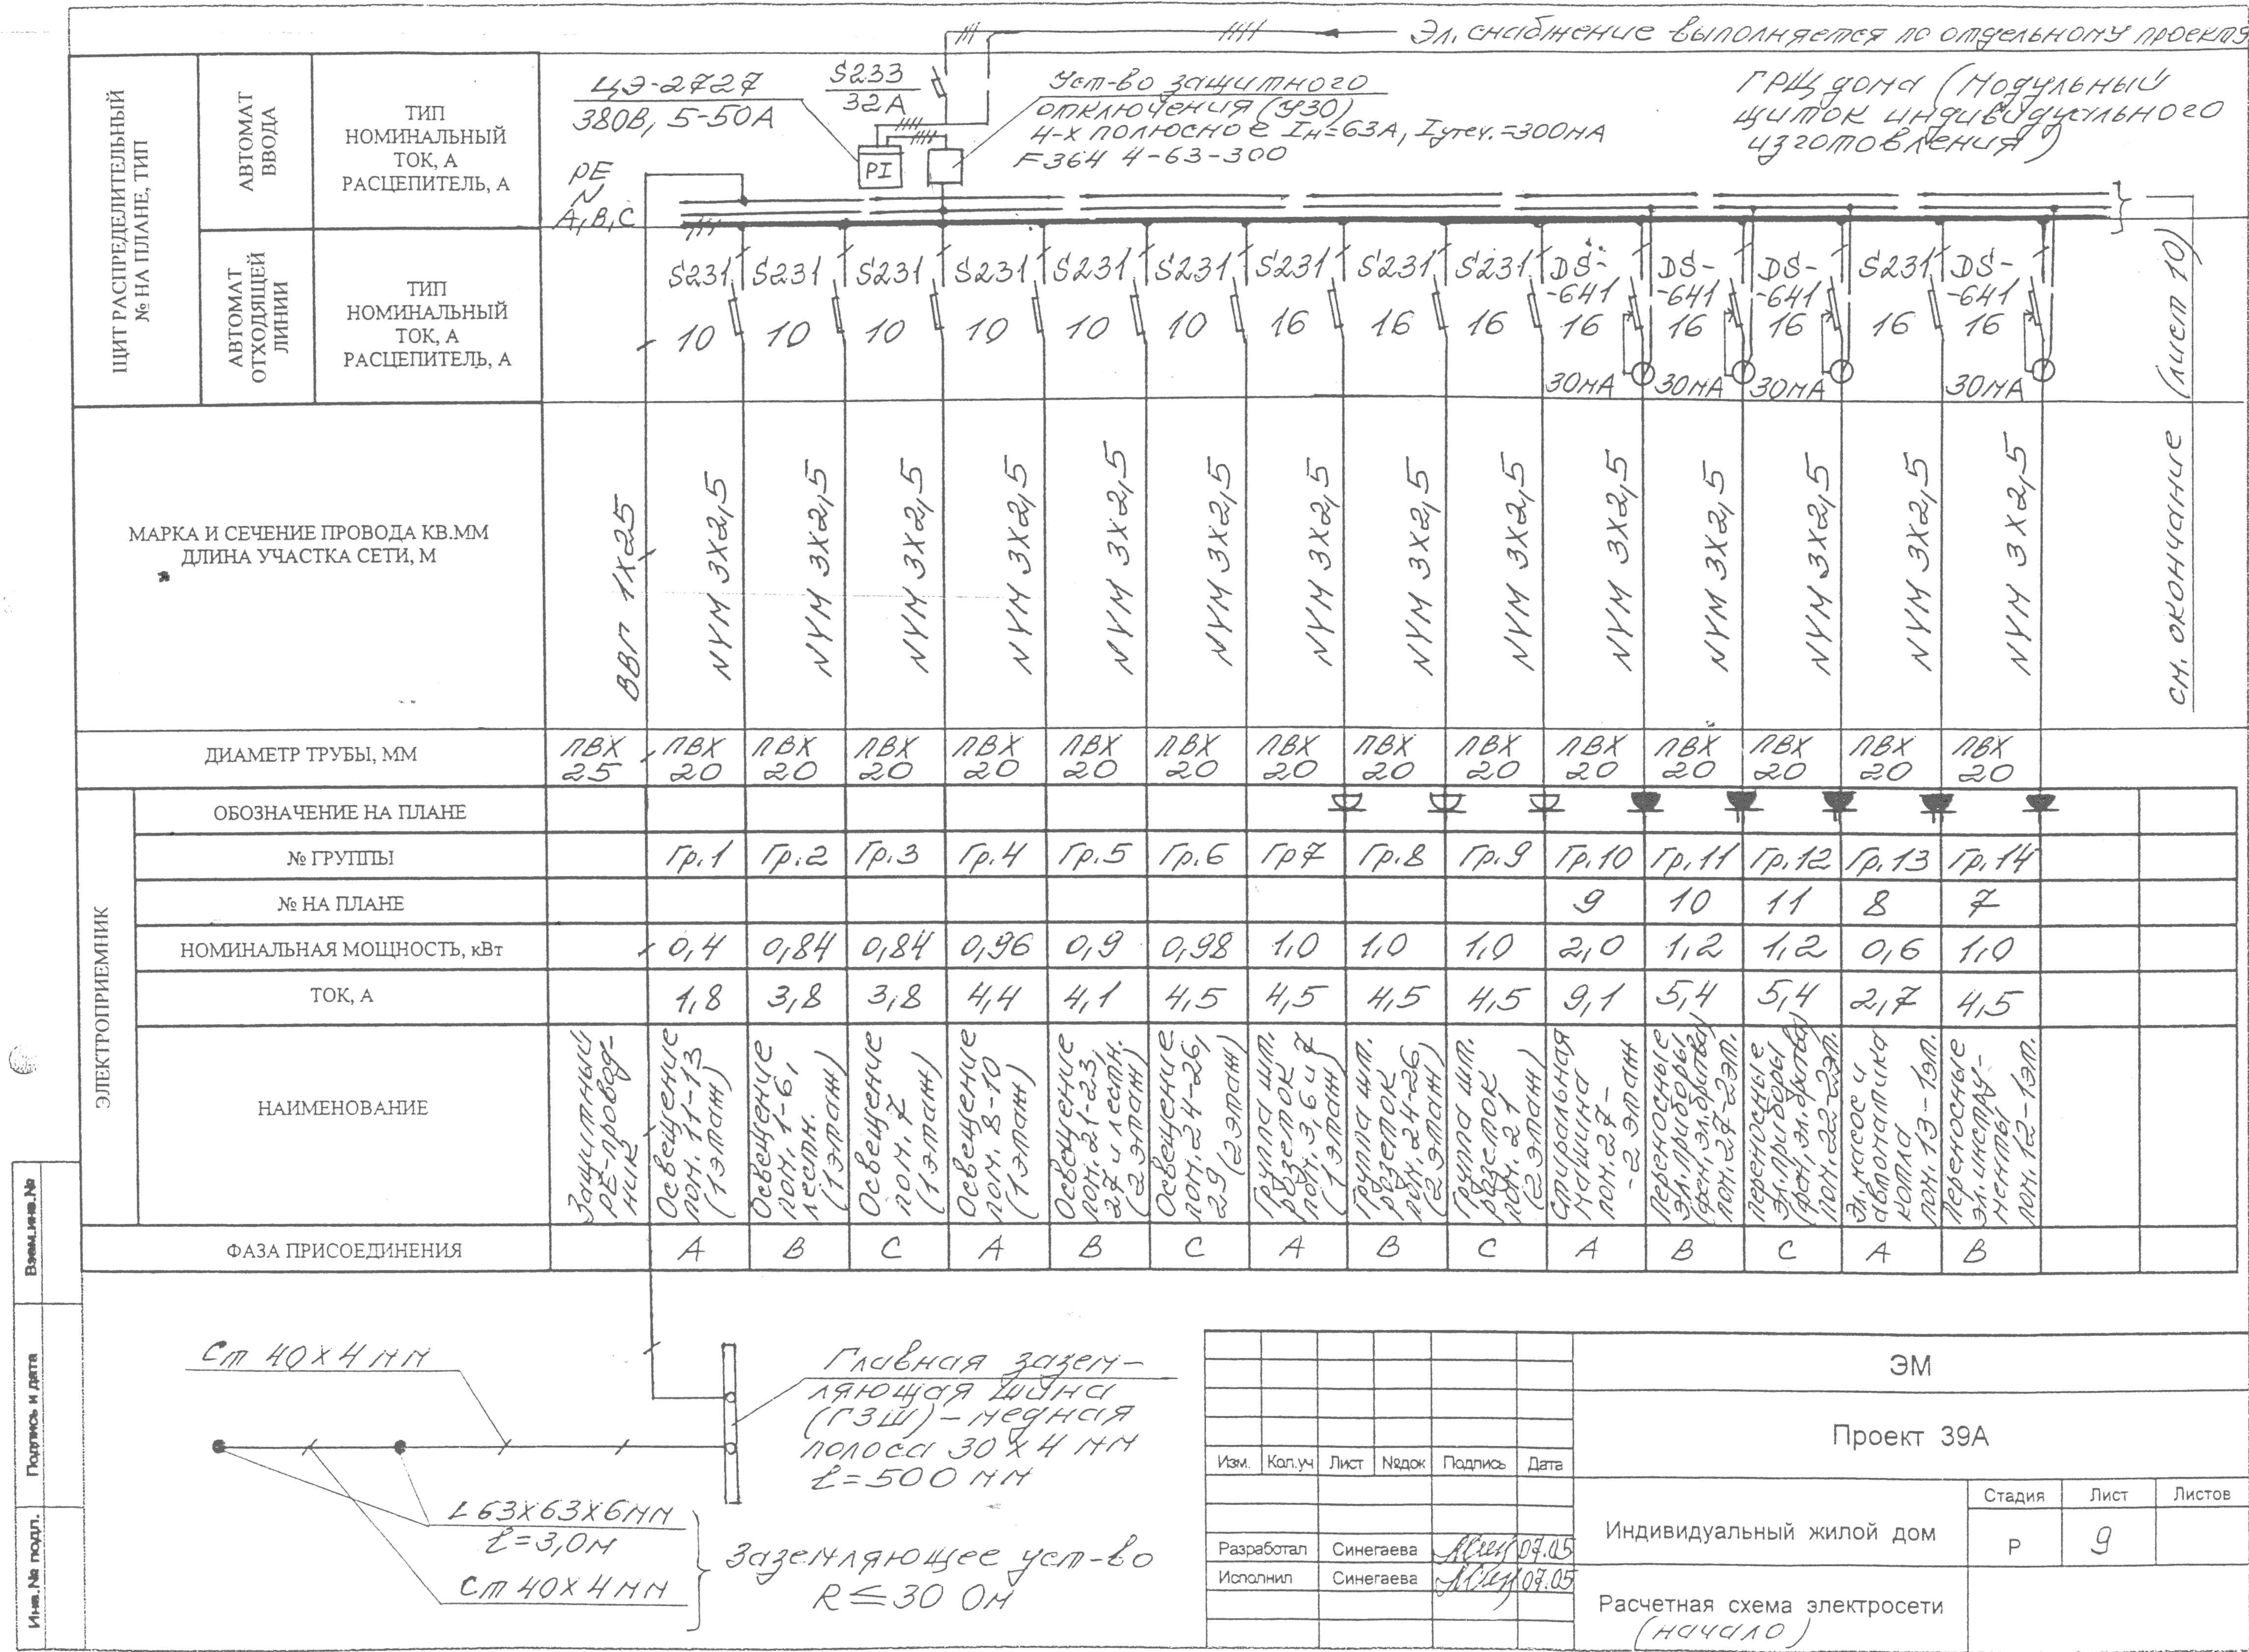 Эл. снабжение выполняется по отдельному проекту
ЩИТ РАСПРЕДЕЛИТЕЛЬНЫЙ
№ НА ПЛАНЕ, ТИП
АВТОМАТ
ВВОДА
ТИП
НОМИНАЛЬНЫЙ
ТОК, А
РАСЦЕПИТЕЛЬ, А
ЦЭ-2727
380В, 5-50А
S233
32А
Уст-во защитного
отключения (УЗО)
4-х полюсное Iн=63А, Iутеч.=300мА
F364 4-63-300
ГРЩ дома (Модульный
щиток индивидуального
изготовления)
PI
PE
N
А, В, С
АВТОМАТ
ОТХОДЯЩЕЙ
ЛИНИИ
ТИП
НОМИНАЛЬНЫЙ
ТОК, А
РАСЦЕПИТЕЛЬ, А
S231 S231 S231 S231 S231 S231 S231 S231 S231 DS- DS- DS- S231 DS-
-641 -641 -641 -641
10 10 10 10 10 10 16 16 16 16 16 16 16 16
30мА 30мА 30мА 30мА
см. окончание (лист 10)
МАРКА И СЕЧЕНИЕ ПРОВОДА КВ.ММ
ДЛИНА УЧАСТКА СЕТИ, М
ВВГ 1х25
NYM 3х2,5
NYM 3х2,5
NYM 3х2,5
NYM 3х2,5
NYM 3х2,5
NYM 3х2,5
NYM 3х2,5
NYM 3х2,5
NYM 3х2,5
NYM 3х2,5
NYM 3х2,5
NYM 3х2,5
NYM 3х2,5
NYM 3х2,5
ДИАМЕТР ТРУБЫ, ММ
ПВХ ПВХ ПВХ ПВХ ПВХ ПВХ ПВХ ПВХ ПВХ ПВХ ПВХ ПВХ ПВХ ПВХ ПВХ
25 20 20 20 20 20 20 20 20 20 20 20 20 20 20
ЭЛЕКТРОПРИЕМНИК
ОБОЗНАЧЕНИЕ НА ПЛАНЕ
№ ГРУППЫ
Гр.1 Гр.2 Гр.3 Гр.4 Гр.5 Гр.6 Гр7 Гр.8 Гр.9 Гр.10 Гр.11 Гр.12 Гр.13 Гр.14
№ НА ПЛАНЕ
9 10 11 8 7
НОМИНАЛЬНАЯ МОЩНОСТЬ, кВт
0,4 0,84 0,84 0,96 0,9 0,98 1,0 1,0 1,0 2,0 1,2 1,2 0,6 1,0
ТОК, А
1,8 3,8 3,8 4,4 4,1 4,5 4,5 4,5 4,5 9,1 5,4 5,4 2,7 4,5
НАИМЕНОВАНИЕ
Защитный
РЕ-провод-
ник
Освещение
пом. 11-13
(1этаж)
Освещение
пом. 1-6,
лестн.
(1этаж)
Освещение
пом. 7
(1этаж)
Освещение
пом. 8-10
(1этаж)
Освещение
пом. 21-23,
27 и лестн.
(2этаж)
Освещение
пом. 24-26,
29 (2этаж)
Группа шт.
розеток
пом. 3,6 и 7
(1этаж)
Группа шт.
розеток
пом. 24-26
(2этаж)
Группа шт.
розеток
пом. 21
(2этаж)
Стиральная
машина
пом. 27-
-2 этаж
Переносные
эл. приборы
(фен, эл.бритва)
пом. 27-2эт.
Переносные
эл. приборы
(фен, эл.бритва)
пом. 22-2эт.
Эл. насос и
автоматика
котла
пом. 13-1эт.
Переносные
эл. инстру-
менты
пом. 12-1эт.
ФАЗА ПРИСОЕДИНЕНИЯ
А В С А В С А В С А В С А В
Взам.инв.№
Подпись и дата
Инв.№ подл.
Ст 40х4 мм
Главная зазем-
ляющая шина
(ГЗШ) - медная
полоса 30х4 мм
ℓ=500 мм
L 63х63х6мм
ℓ=3,0м
Ст 40х4 мм
Заземляющее уст-во
R ≤ 30 Ом
ЭМ
Проект 39А
Изм. Кол.уч Лист №док Подпись Дата
Индивидуальный жилой дом
Стадия Лист Листов
Р 9
Разработал Синегаева 07.05
Исполнил Синегаева 07.05
Расчетная схема электросети
(начало)